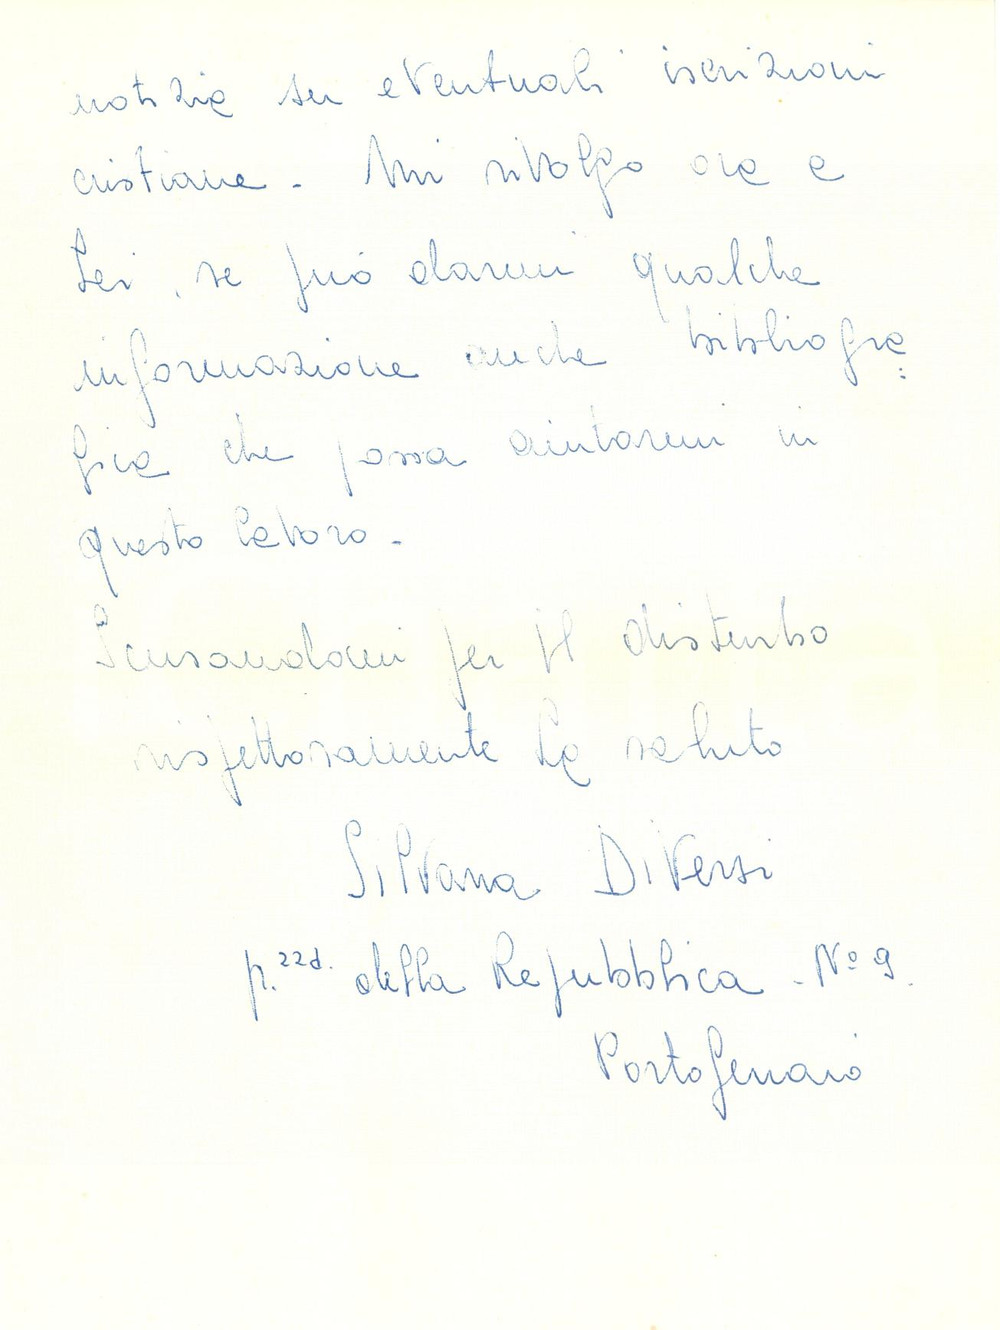 notizie su eventuali iscrizioni
cristiane - Mi rivolgo ora a
Lei, se può darmi qualche
informazione anche bibliogra=
fica che possa aiutarmi in
questo lavoro -
Scusandomi per il disturbo
rispettosamente La saluto
Silvana Diversi
p.zza della Repubblica - N° 9.
Portoferraio